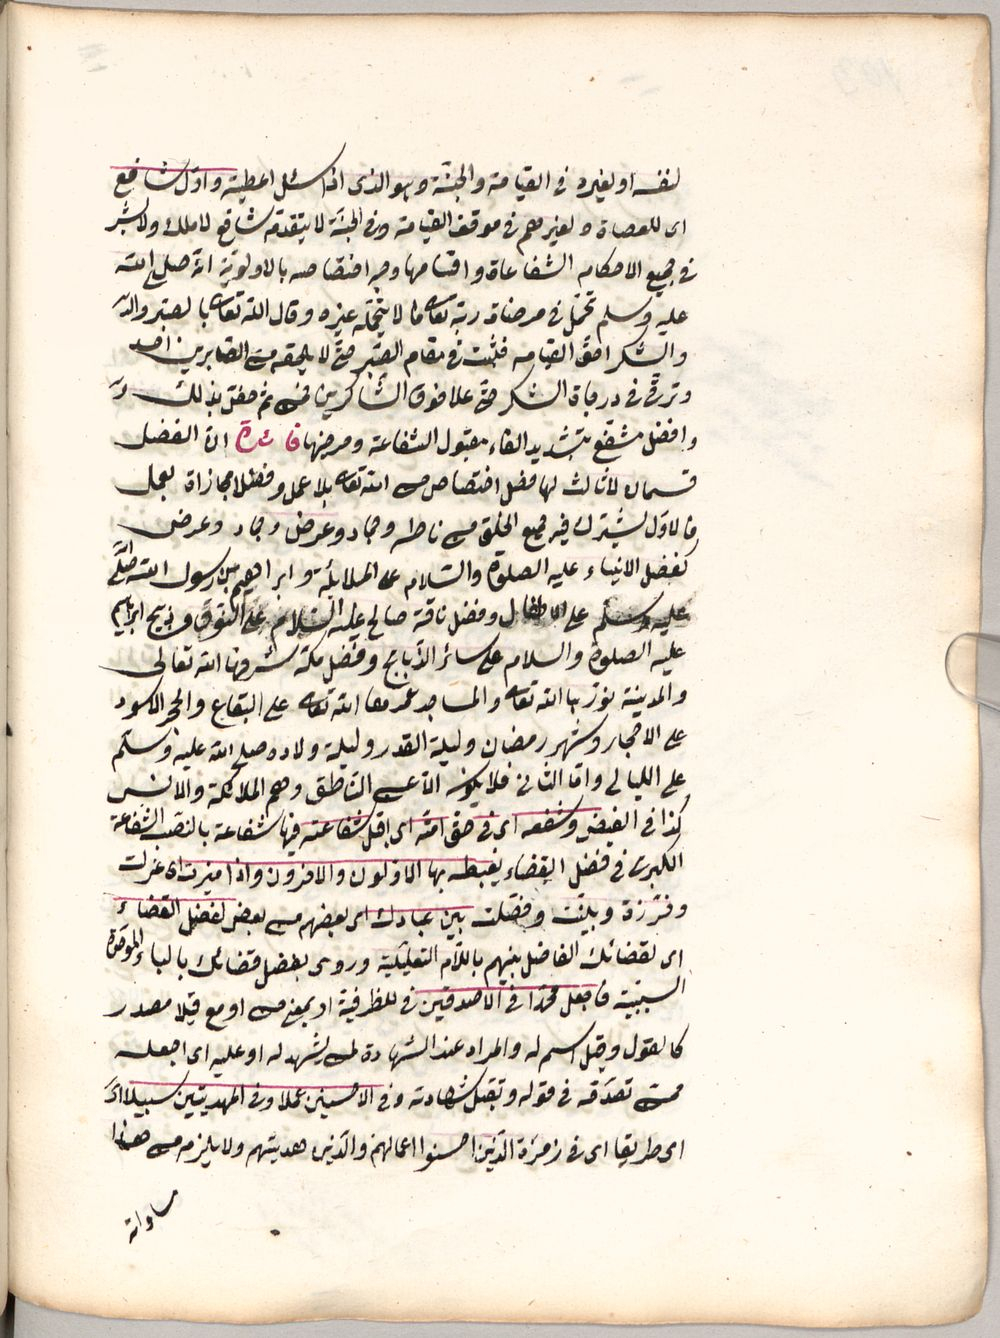 لنفسه او لغيره فى القيامة والجنة وهو الذى اذا سئل اعطيته واول شافع
اى للعصاة ولغيرهم فى موقف القيامة وفى الجنة لا يتقدمه شافع لا ملك ولا بشر
فى جميع الاحكام الشفاعة واقسامها وجه اختصاصه بالاولوية انه صلى الله
عليه وسلم تحمل فى مرضاة ربه تعالى ما لا يتحمله غيره وقال الله تعالى بالصبر
والشكر احق القيام فثبت فى مقام الصبر حتى لا يلحقه من الصابرين احد
وترقى فى درجات الشكر حتى علا فوق الشاكرين فمن ثم خص بذلك
وافضل مشفع بتشديد الفاء مقبول الشفاعة ومرضيها فائدة ان الفضل
قسمان لا ثالث لهما فضل اختصاص من الله تعالى بلا عمل وفضل مجازاة بعمل
فالاول يشترك فيه جميع الخلق من ناطق وجماد وعرض
كفضل الانبياء عليه الصلوة والسلام على الملائكة وابراهيم بن رسول الله صلى
عليه وسلم على الاطفال وفضل ناقة صالح عليه السلام على النوق وذبيح ابراهيم
عليه الصلوة والسلام على سائر الذبايح وفضل مكة شرفها الله تعالى
والمدينة نورها الله تعالى والمساجد عمرها الله تعالى على البقاع والحجر الاسود
على الاحجار وشهر رمضان وليلة القدر وليلة ولاده صلى الله عليه وسلم
على الليالى واما الثانى فلا يكون الا على الناطق وهم الملائكة والانس
كذا فى الفيض وشفعه اى فى حق امته اى اقبل شفاعته فيها شفاعة بالنصب الشفاعة
الكبرى فى فضل القضاء يغبطه بها الاولون والاخرون واذا ميزت اى عزلت
وفرزة وبينت وفصلت بين عبادك اى بعضهم من بعض لفصل القضاء
اى لقضائك الفاصل بينهم باللام التعليلية وروى بفصل قضائك بالباء الموحدة
السببية فاجعل محمدا فى الاصدقين فى للظرفية او بمعنى من او مع قيلا مصدر
كالقول وقيل اسم له والمراد عند الشهادة لمن يشهد له او عليه اى اجعله
ممن تصدقه فى قوله وتقبل شهادته وفى الاحسنين عملا وفى المهديين سبيلا اى
اى طريقا اى فى زمرة الذين احسنوا اعمالهم والذين هديتهم ولا يلزم من هذا
مساواته